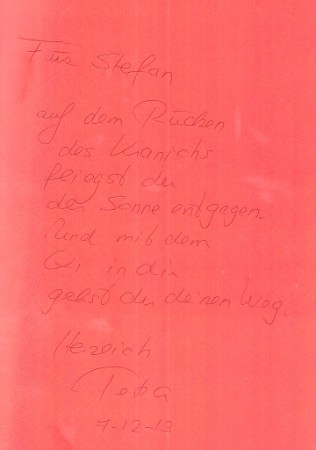 Für Stefan
auf dem Rücken
des Kranichs
fliegst du
der Sonne entgegen
Und mit dem
Qi in dir
gehst du deinen Weg.
Herzlich
Petra
7-12-13